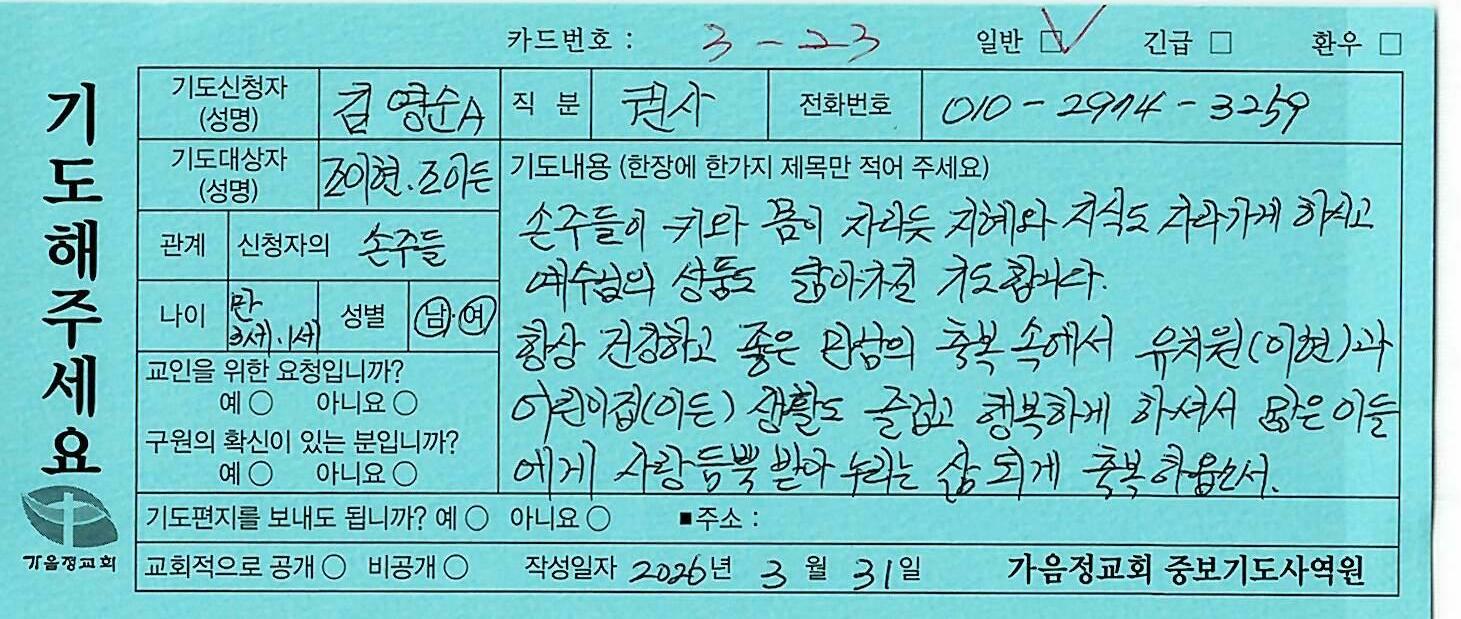 카드번호 : 3-23 일반 □ 긴급 □ 환우 □
기도해주세요
기도신청자 (성명) 김영순A 직 분 권사 전화번호 010-2974-3259
기도대상자 (성명) 조이현.조이든
관계 신청자의 손주들
나이 만 3세.1세 성별 남·여
교인을 위한 요청입니까?
예 ○ 아니요 ○
구원의 확신이 있는 분입니까?
예 ○ 아니요 ○
기도내용 (한장에 한가지 제목만 적어 주세요)
손주들이 키와 몸이 자라듯 지혜와 지식도 자라가게 하시고
예수님의 성품도 닮아가길 기도합니다.
항상 건강하고 좋은 만남의 축복 속에서 유치원(이현)과
어린이집(이든) 생활도 즐겁고 행복하게 하셔서 많은이들
에게 사랑듬뿍 받아 누리는 삶 되게 축복하옵소서.
기도편지를 보내도 됩니까? 예 ○ 아니요 ○ ■주소 :
교회적으로 공개 ○ 비공개 ○ 작성일자 2026년 3월 31일 가음정교회 중보기도사역원
가음정교회